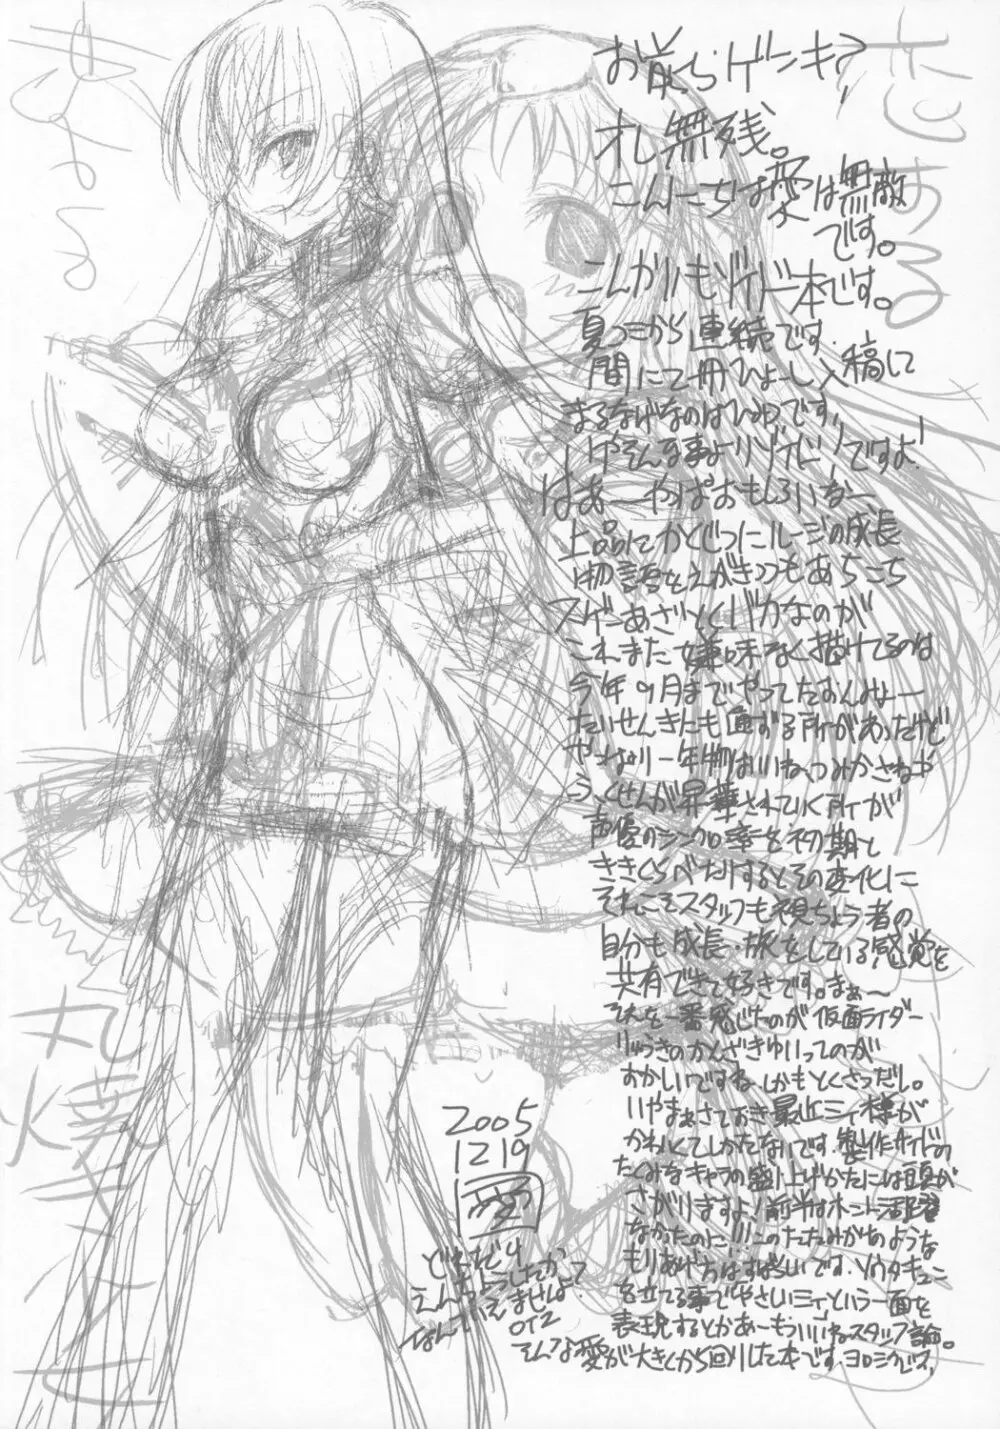 お前らゲンキ?
オレ無残。
こんにちは愛は無敵
です。
こんかいもゾイド本です。
夏コミから連続です。
間に二冊ひょーし入稿して
まるなげなのはひゆです!
じゃそんな事よりゾイドですよ!
はあーやっぱおもしろいなー
上品にかくじつにルージの成長
物語をえがきつつもあちこち
スゲーあざとくバカなのが
これまた嫌味なく描けてるのは
今年9月までやってたおんみょー
たいせんきにも通ずる所があったけど
やっぱり一年物はいいね、つみかさねや
ふくせんが昇華されていく所が
声優のシンクロ率を初期と
ききくらべたりするとその変化に
それこそスタッフも視ちょう者の
自分も成長・旅をしている感覚を
共有できて好きです。まあ〜
それを一番感じたのが仮面ライダー
びゅうきのかんざきゆいってのが
おかしいですね、しかもとくさつだし。
いやまぁさておき最近ミィ様が
かわいくてしかたないです。製作サイドの
たくみなキャラの盛り上げかたには頭が
さがりますよ!前半はホント活躍
なかったのに!!!このたたみかけのような
もりあげ方はすばらしいです。ソウタキュンに
を立てる事でやさしいミィという一面を
表現するとかあーもういいねスタッフ論。
そんな愛が大きくから回りした本です。ヨロシクです。
2005
12 19
愛
どれだけ
えんちょうしたか
なんていえませんよ?
OTZ
丸焼き